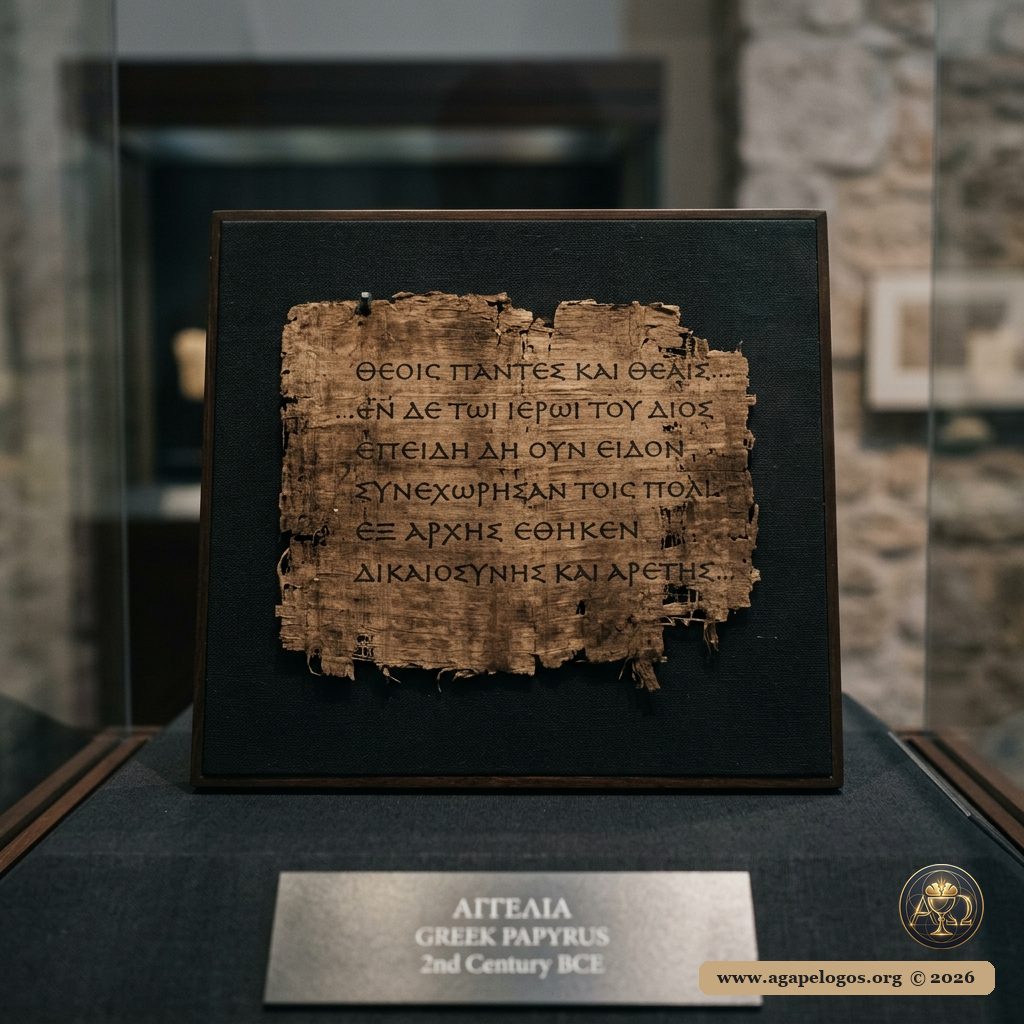 ΘΕΟΙϹ ΠΑΝΤΕΣ ΚΑΙ ΘΕΑΙΣ...
...ΕΝ ΔΕ ΤΩΙ ΙΕΡΩΙ ΤΟΥ ΔΙΟΣ
ΕΠΕΙΔΗ ΔΗ ΟΥΝ ΕΙΔΟΝ
ΣΥΝΕΧΩΡΗΣΑΝ ΤΟΙϹ ΠΟΛΙ.
ΕΞ ΑΡΧΗΣ ΕΘΗΚΕΝ
ΔΙΚΑΙΟΣΥΝΗΣ ΚΑΙ ΑΡΕΤΗΣ...
ΑΓΓΕΛΙΑ
GREEK PAPYRUS
2nd Century BCE
ΑΩ
www.agapelogos.org © 2026